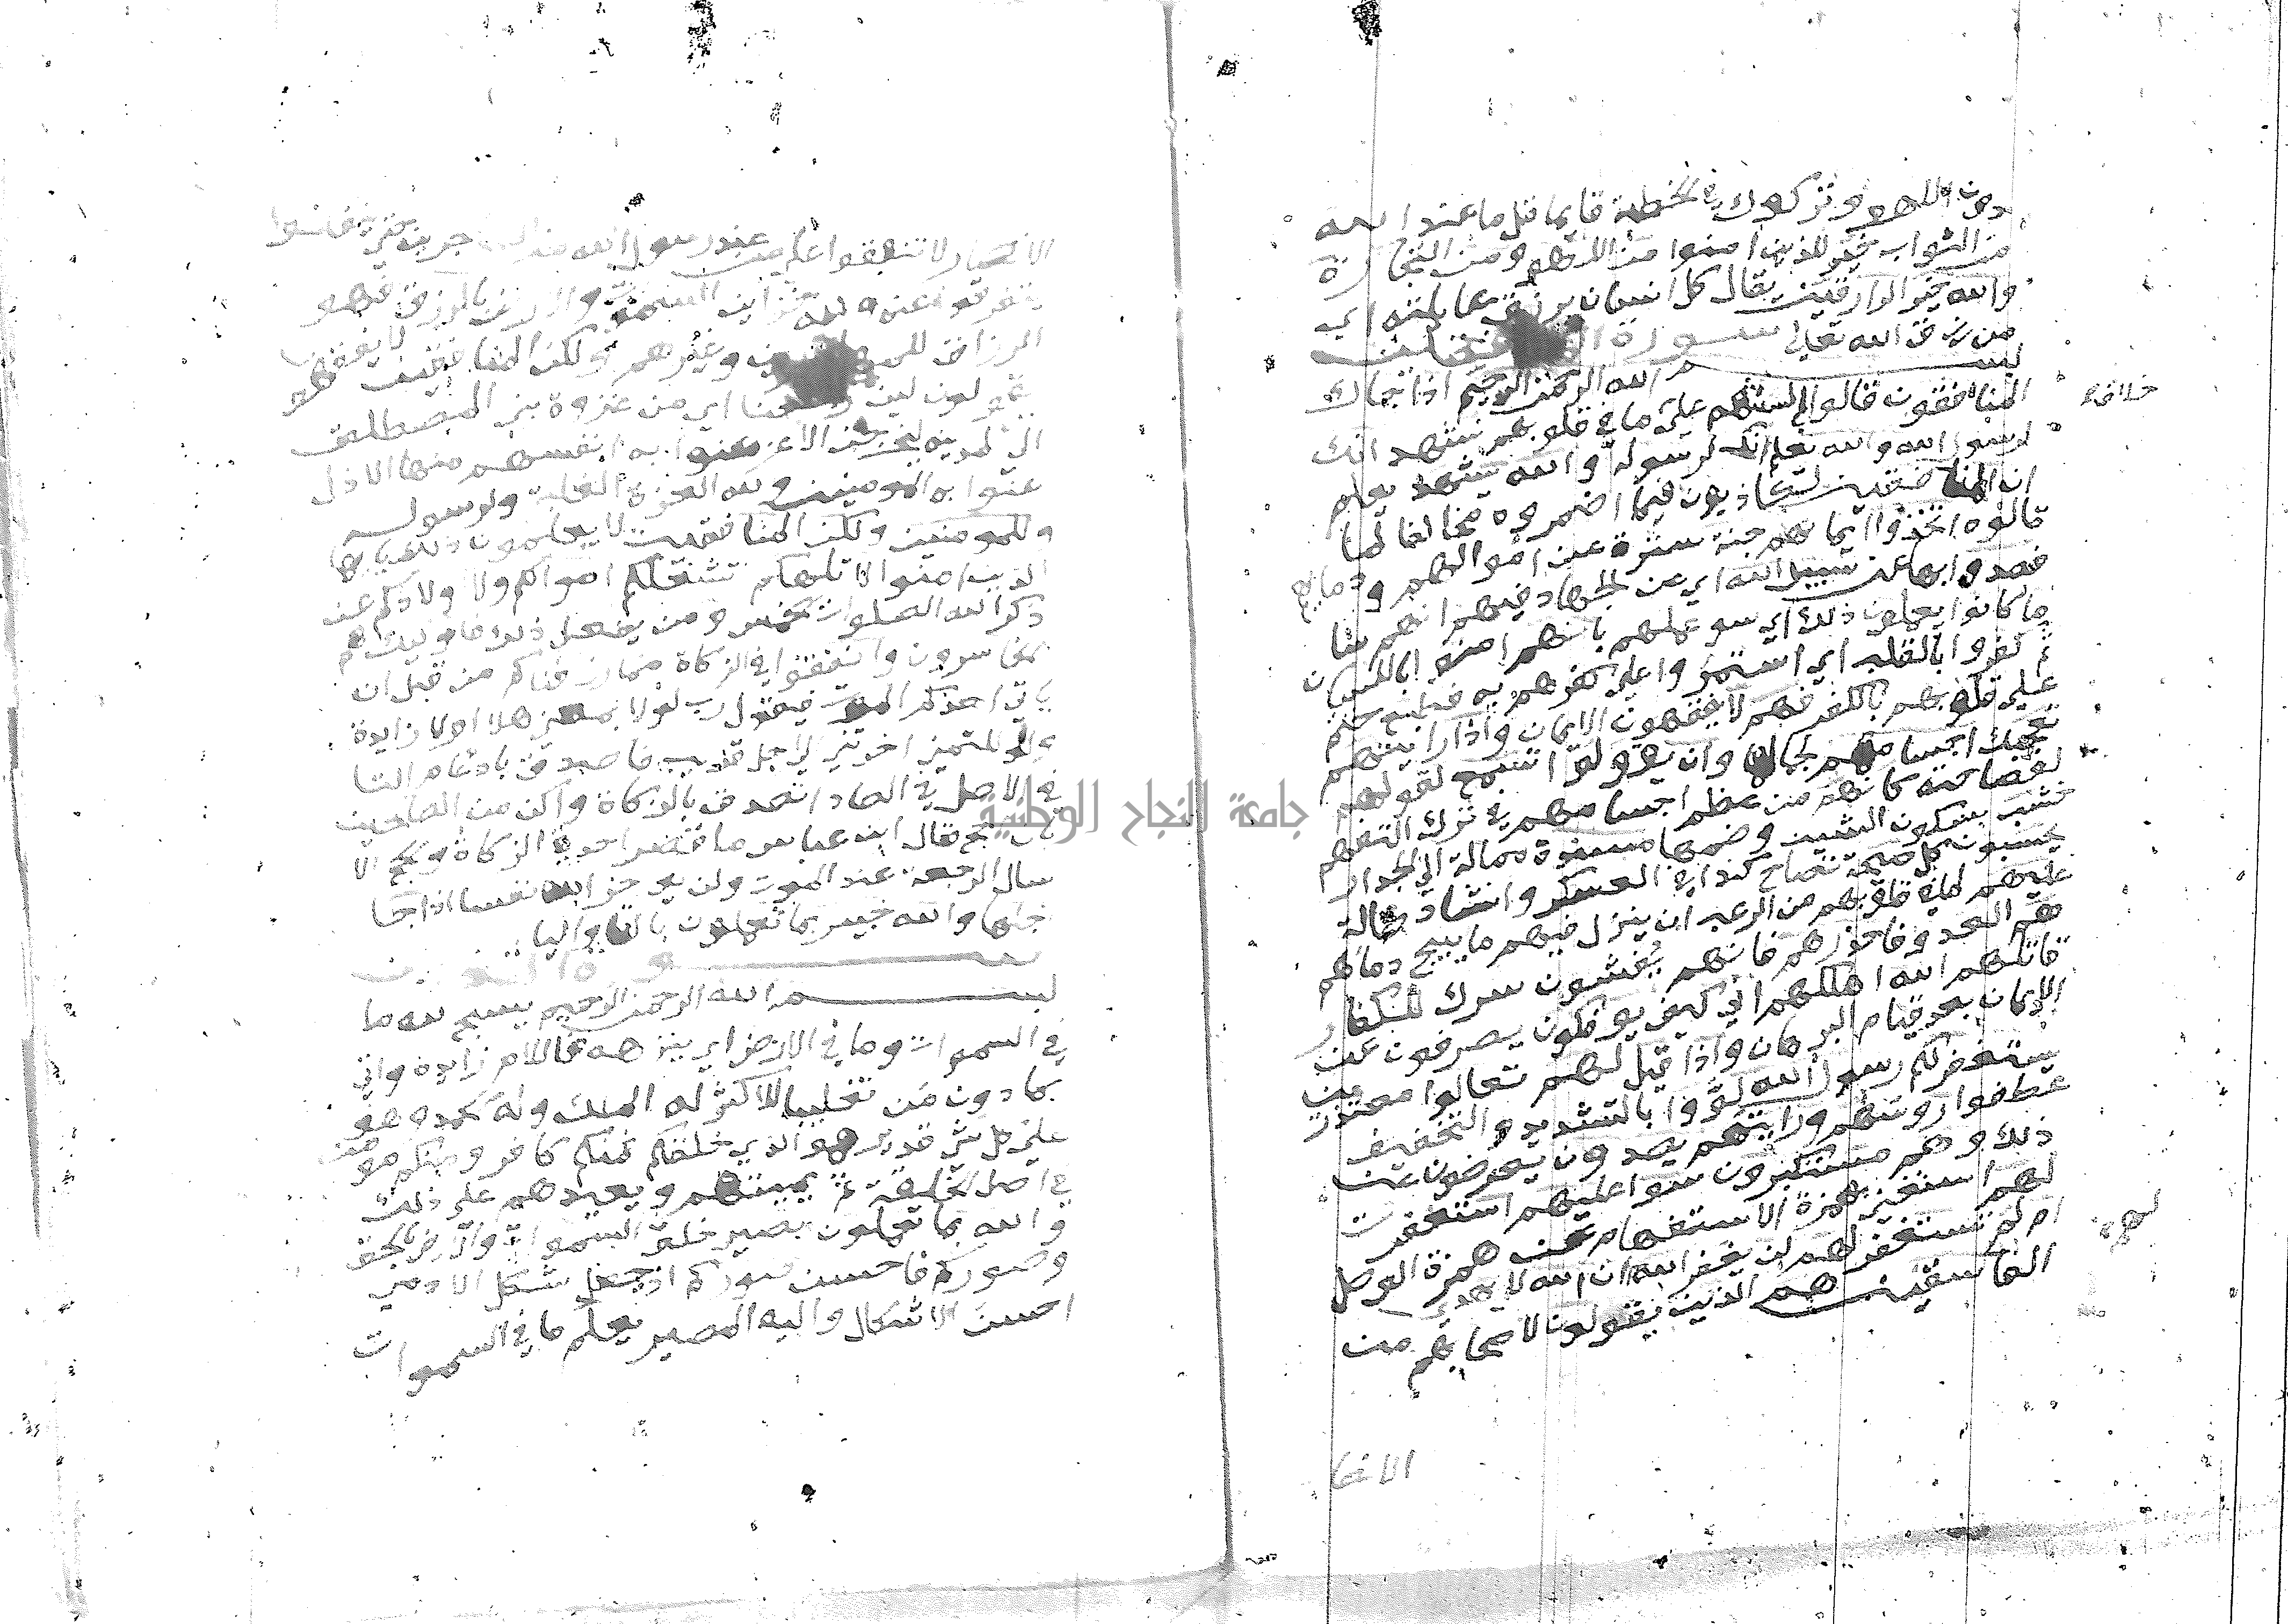 دون اللهو وتركوك في الخطبة قايما قل ما عند الله
من الثواب خير للذين امنوا من اللهو ومن التجارة
والله خير الرازقين يقال كل انسان يرزق عايلته اي
من رزق الله تعالى سورة المنافقين
بسم الله الرحمن الرحيم اذا جاك
المنافقون قالوا بالسنتهم على ما في قلوبهم نشهد انك
لرسول الله والله يعلم انك لرسوله والله يشهد يعلم
ان المنافقين لكاذبون فيما اضمروه مخالفا لما
قالوه اتخذوا ايمانهم جنة سترة عن اموالهم ودمايهم
فصدوا بها عن سبيل الله اي عن الجهاد فيهم انهم سا
ما كانوا يعملون ذلك اي سو عملهم بانهم امنوا باللسان
ثم كفروا بالقلب اي استمروا على كفرهم به فطبع ختم
على قلوبهم بالكفر فهم لا يفقهون الايمان واذا رايتهم
تعجبك اجسامهم لجمالها وان يقولوا تسمع لقولهم
لفصاحته كانهم من عظم اجسامهم في ترك التفهم
خشب بسكون الشين وضمها مسندة ممالة الى الجدار
يحسبون كل صيحة تصاح كنداء في العسكر وانشاد ضالة
عليهم لما في قلوبهم من الرعب ان ينزل فيهم ما يبيح دماهم
هم العدو فاحذرهم فانهم يفشون سرك للكفار
قاتلهم الله اهلكهم انى كيف يوفكون يصرفون عن
الايمان بعد قيام البرهان واذا قيل لهم تعالوا معتذرين
يستغفر لكم رسول الله لووا بالتشديد والتخفيف
عطفوا روسهم ورايتهم يصدون يعرضون عن
ذلك وهم مستكبرون سوا عليهم استغفرت
لهم استغني بهمزة الاستفهام عن همزة الوصل
ام لم تستغفر لهم لن يغفر الله لهم ان الله لا يهدي
الفاسقين هم الذين يقولون لاصحابهم من
الانصار
الانصار لا تنفقوا على من عند رسول الله من المهاجرين حتى ينفضوا
يتفرقوا عنه ولله خزاين السموات والارض بالرزق فهو
الرزاق للمهاجرين وغيرهم ولكن المنافقين لا يفقهون
يقولون لين رجعنا اي من غزوة بني المصطلق
الى المدينة ليخرجن الاعز عنوا به انفسهم منها الاذل
عنوا به المومنين ولله العزة الغلبة ولرسوله
وللمومنين ولكن المنافقين لا يعلمون ذلك يا ايها
الذين امنوا لا تلهكم تشغلكم اموالكم ولا اولادكم عن
ذكر الله الصلوات الخمس ومن يفعل ذلك فاوليك هم
الخاسرون وانفقوا في الزكاة مما رزقناكم من قبل ان
ياتي احدكم الموت فيقول رب لولا بمعنى هلا او لا زايدة
ولو للتمني اخرتني الى اجل قريب فاصدق بادغام التا
في الاصل في الصاد اتصدق بالزكاة واكن من الصالحين
بان احج قال ابن عباس ما قصر احد في الزكاة والحج الا
سال الرجعة عند الموت ولن يوخر الله نفسا اذا جا
اجلها والله خبير بما تعملون بالتا واليا
بسم الله الرحمن الرحيم يسبح لله ما
في السموات وما في الارض اي ينزهه فاللام زايدة واتى
بما دون من تغليبا للاكثر له الملك وله الحمد وهو
على كل شي قدير هو الذي خلقكم فمنكم كافر ومنكم مومن
في اصل الخليقة ثم يميتهم ويعيدهم على ذلك
والله بما تعملون بصير خلق السموات والارض بالحق
وصوركم فاحسن صوركم اذ جعل شكل الادمي
احسن الاشكال واليه المصير يعلم ما في السموات
جامعة النجاح الوطنية